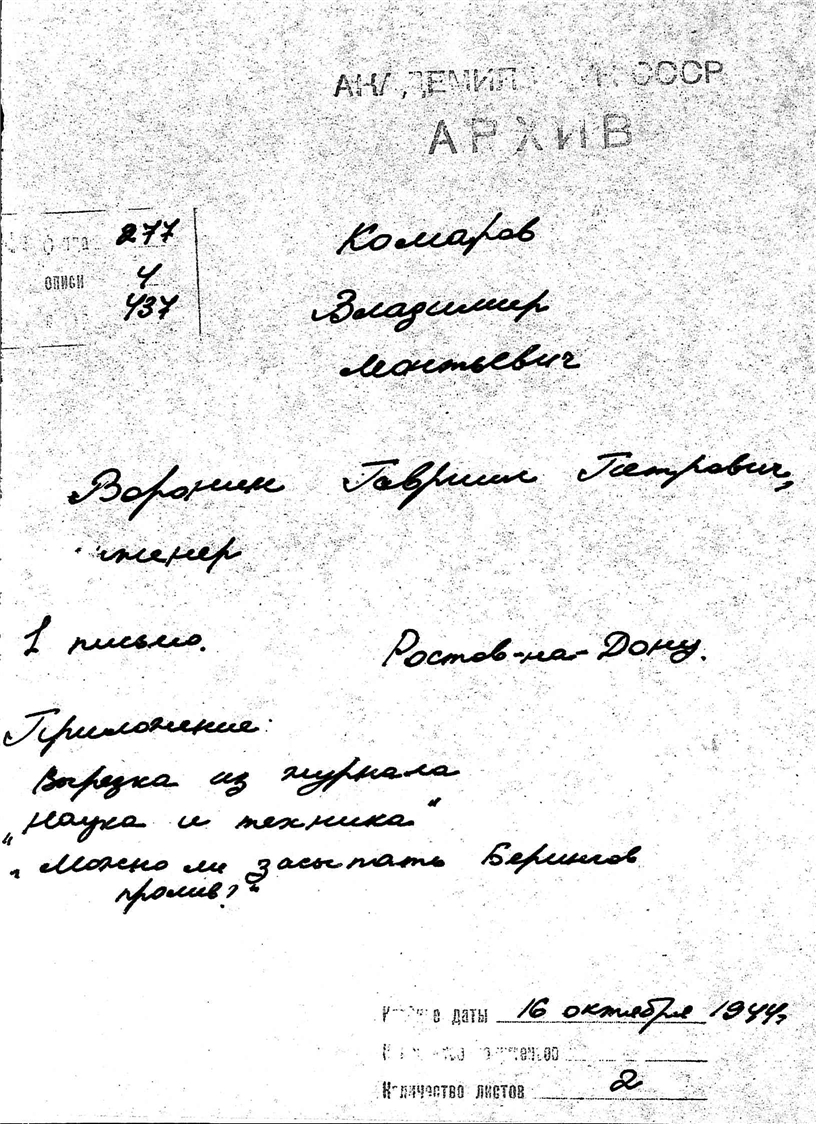 АКАДЕМИЯ СССР
АРХИВ
фонда 277
описи 4
437
Комаров
Владимир
Леонтьевич
Воронин Гавриил Петрович,
инженер
1 письмо. Ростов-на-Дону.
Приложение:
Вырезка из журнала
„Наука и техника“
„Можно ли засыпать Берингов
пролив?“
Крайние даты 16 октября 1944г.
Количество листов 2